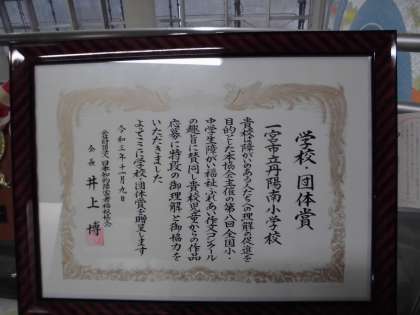 学校・団体賞
一宮市立丹陽南小学校
貴校は障がいのある人たちへの理解の促進を
目的とした本協会主催の第八回全国小・
中学生障がい福祉ふれあい作文コンクール
の趣旨に賛同し貴校児童からの作品
応募に特段の御理解と御協力を
いただきました
よってここに学校・団体賞を贈呈します
令和三年十一月九日
会長 井上 博